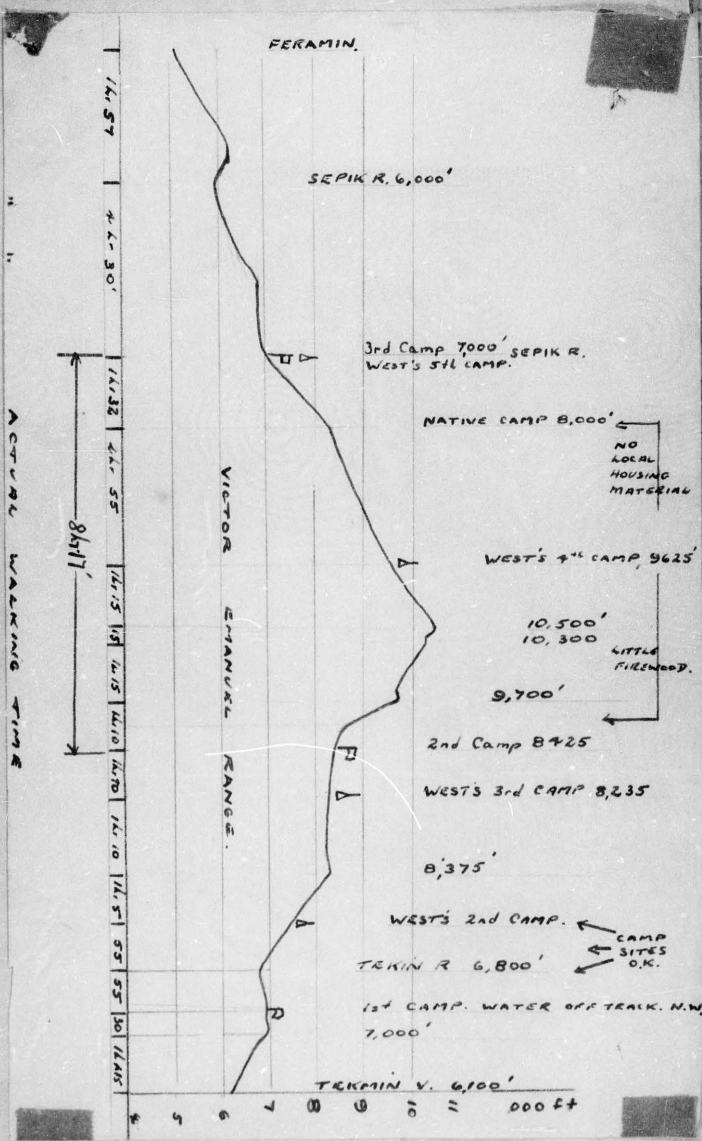 FERAMIN.
SEPIK R. 6,000'
3rd Camp 7,000' SEPIK R.
WEST'S 5th CAMP.
NATIVE CAMP 8,000'
NO
LOCAL
HOUSING
MATERIAL
WEST'S 4th CAMP, 9625'
10,500'
10,300
LITTLE
FIREWOOD.
9,700'
2nd Camp 8425
WEST'S 3rd CAMP 8,235
8,375'
WEST'S 2nd CAMP.
CAMP
SITES
O.K.
TEKIN R 6,800'
1st CAMP. WATER OFF TRACK. N.W
7,000'
TEKMIN V. 6,100'
4 5 6 7 8 9 10 11 000 ft
VICTOR EMANUEL RANGE.
ACTUAL WALKING TIME " "
8hr17'
1h.57
4h.30'
1h.32
1h.15
15
1h.15
1h.10
1h.10
1h.5
55
55
30